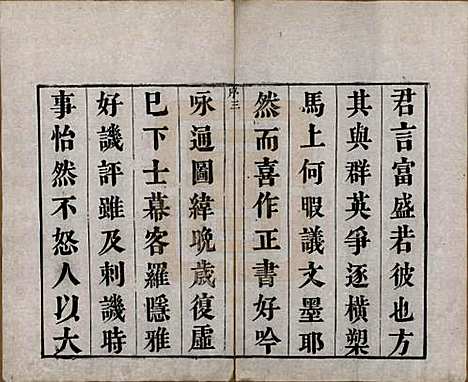 君言富盛若彼也方
其與群英爭逐橫槊
馬上何暇議文墨耶
然而喜作正書好吟
序三
咏通圖緯晚歲復虛
巳下士幕客羅隱雅
好譏評雖及刺譏時
事怡然不怒人以大